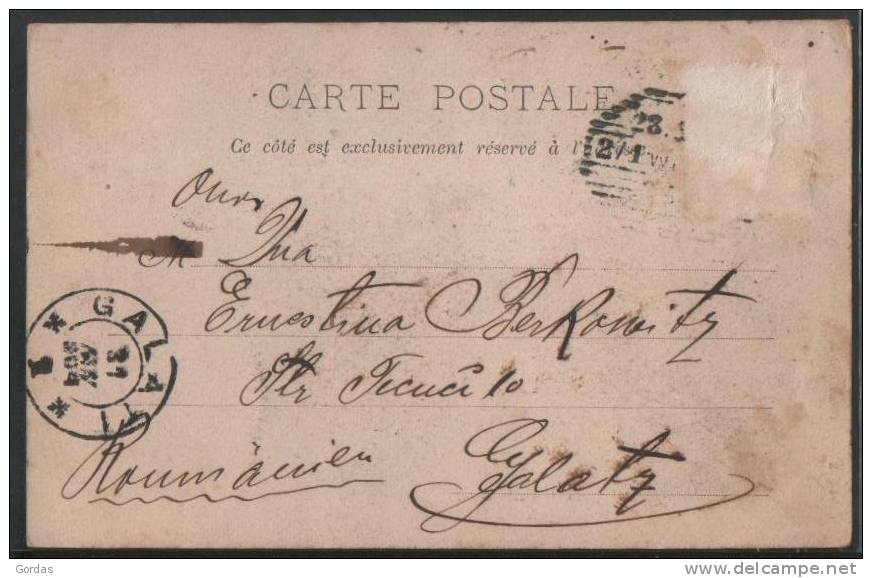 CARTE POSTALE
Ce côté est exclusivement réservé à l'adresse
28.
2/1
Onor
M Dna
Ernestina Berkowitz
Str Tecuci 10
Galatz
Roumänien
* GALATI * 1
31
904
Gordas
www.delcampe.net